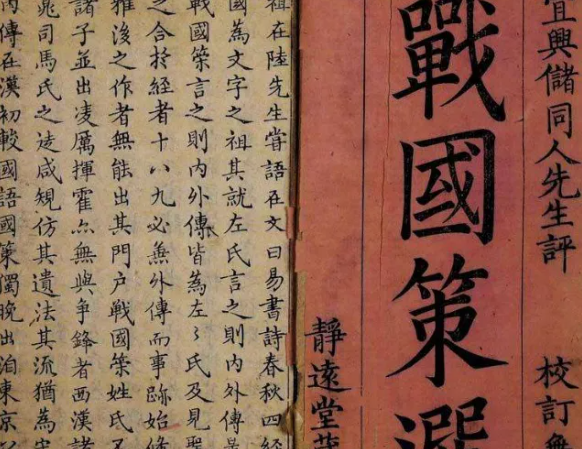 宜興儲同人先生評 校訂無
戰國策選
靜遠堂
祖在陸先生嘗語在文曰易書詩春秋四經
國為文字之祖其就左氏言之則內外傳
戰國策言之則內外傳皆為左〻氏及見聖
之合於經者十八九必無外傳而事跡始
雅後之作者無能出其門戶戰國策姓氏
諸子並出凌厲揮霍尒無與爭鋒者西漢諸
司馬氏之徒咸規仿其遺法其流猶為
傳在漢初較國語國策獨晚出洎東京